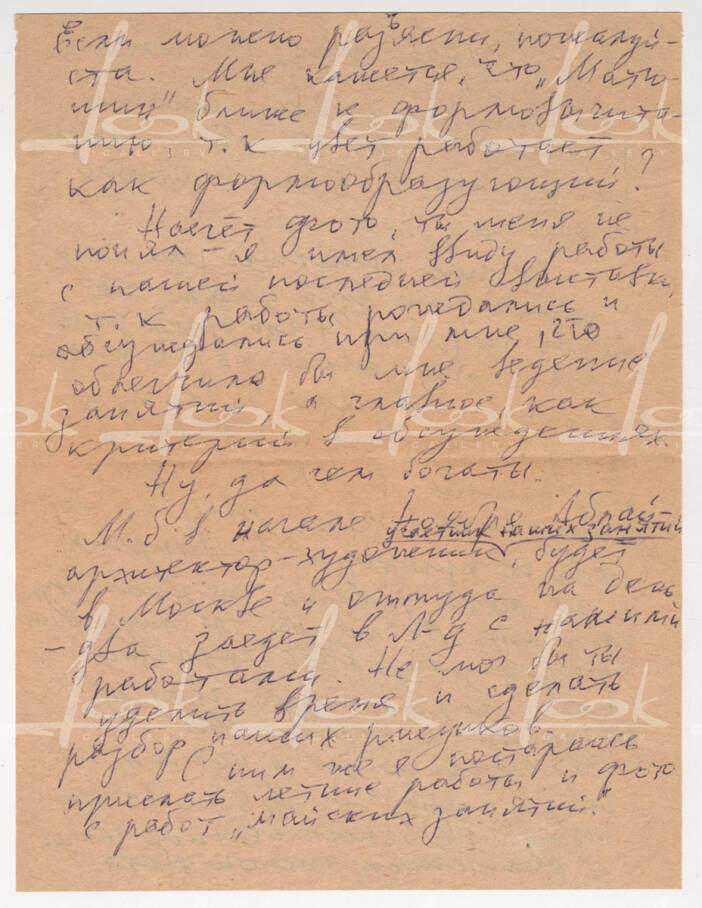 Если можно разъясни, пожалуй-
ста. Мне кажется, что „Матю-
шин" ближе к формовычита-
нию, т.к цвет работает
как формообразующий?
Насчёт фото, ты меня не
понял – я имел ввиду работы
с нашей последней выставки,
т.к работы рождались и
обсуждались при мне, что
облегчило бы мне ведение
занятий, а главное, как
критерий в обсуждениях.
Ну, да чем богаты.
М.б. в начале
участник наших занятий
архитектор-художник, будет
в Москве и оттуда на день
– два заедет в Л-д с нашими
работами. Не мог бы ты
уделить время и сделать
разбор наших рисунков.
С ним же я постараюсь
прислать летние работы и фото
с работ „майских занятий."